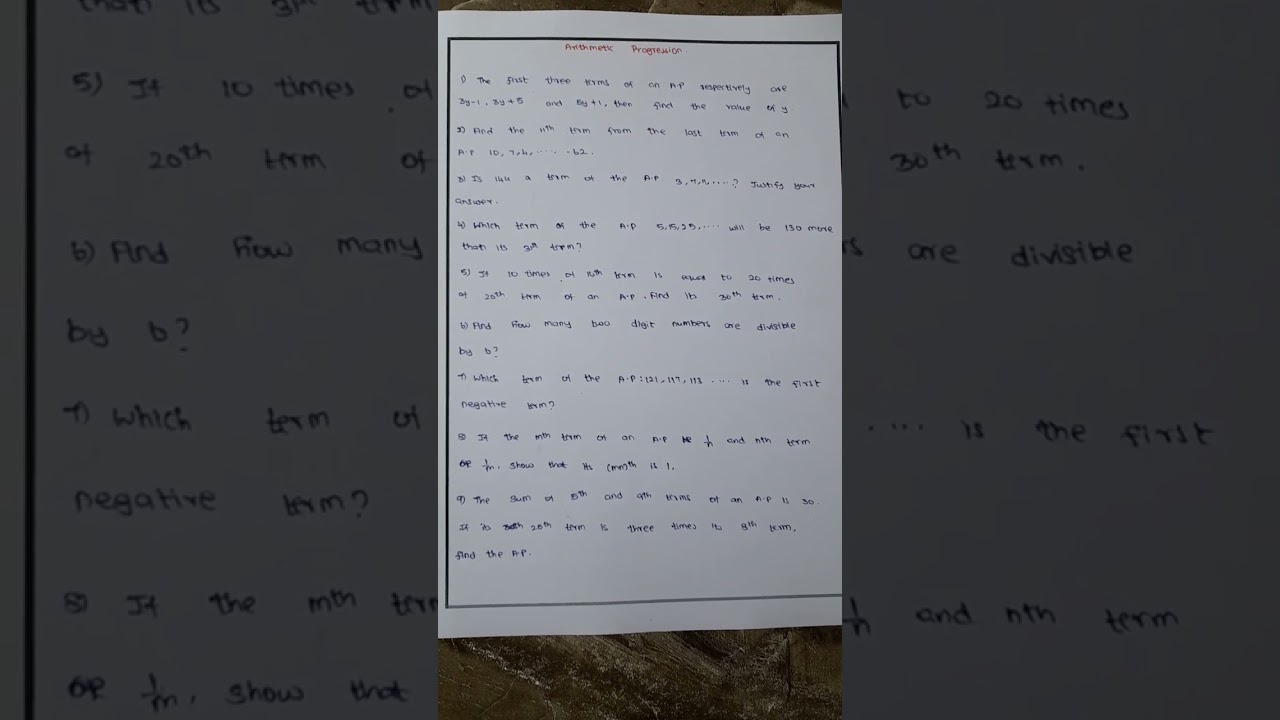 Arithmetic Progression.
1) The first three terms of an A.P respectively are
3y-1, 3y+5 and 5y+1, then find the value of y
2) Find the 11th term from the last term of an
A.P 10, 7, 4, ...... -62.
3) Is 144 a term of the A.P 3, 7, 11, ....? Justify your
answer.
4) Which term of the A.P 5, 15, 25, .... will be 130 more
than its 31st term?
5) If 10 times of 10th term is equal to 20 times
of 20th term of an A.P. Find its 30th term.
6) Find how many two digit numbers are divisible
by 6?
7) Which term of the A.P: 121, 117, 113 .... is the first
negative term?
8) If the mth term of an A.P be 1/n and nth term
be 1/m, show that its (mn)th is 1.
9) The sum of 5th and 9th terms of an A.P is 30.
If its 25th term is three times its 8th term,
find the A.P.